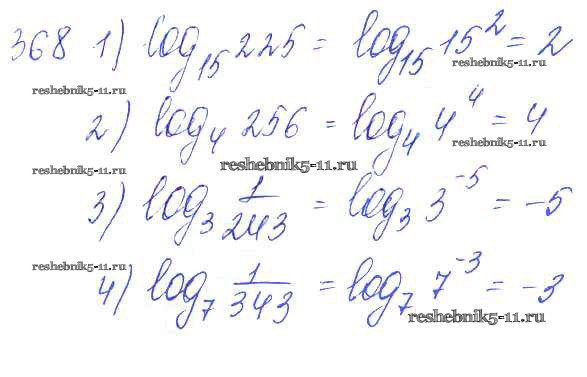 368 1) log₁₅ 225 = log₁₅ 15² = 2
reshebnik5-11.ru reshebnik5-11.ru
2) log₄ 256 = log₄ 4⁴ = 4
reshebnik5-11.ru
reshebnik5-11.ru reshebnik5-11.ru
3) log₃ 1/243 = log₃ 3⁻⁵ = -5
reshebnik5-11.ru
4) log₇ 1/343 = log₇ 7⁻³ = -3
reshebnik5-11.ru